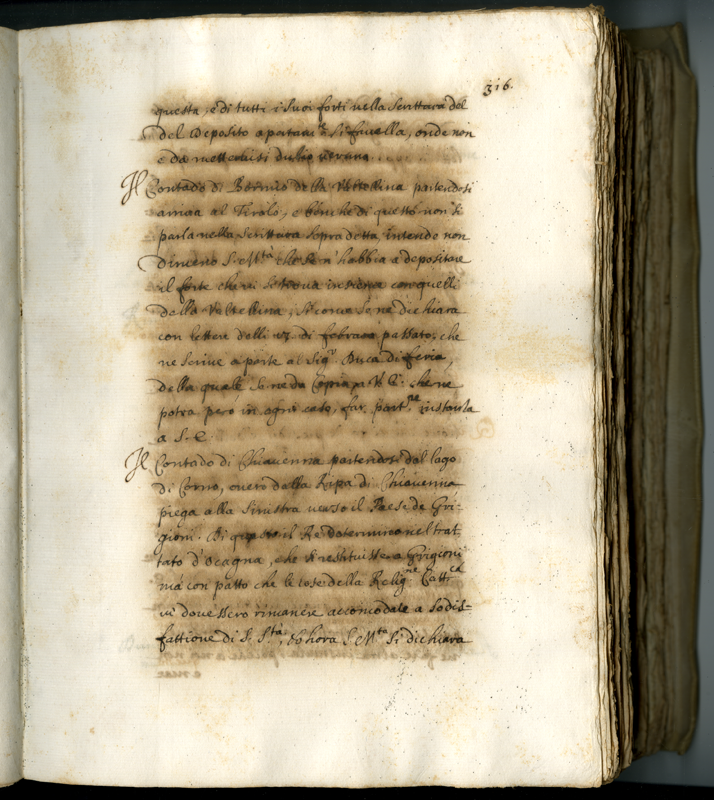 316.
questa, e di tutti i suoi forti nella scrittura del
del Deposito apartam.te si favella, onde non
è da mettervisi dubio veruno.
Il Contado di Bormio della Valtellina partendosi
arriva al Tirolo, e benche di questo non si
parla nella scrittura sopradetta intende non
dimeno S. M.tà che se n'habbia a depositare
il forte che vi si trova insieme con quelli
della Valtellina, si come se ne dichiara
con lettere delli di febraro passato, che
ne scrive a parte al Sig.r Duca di feria,
della quale se ne da Copia a V. E. che ne
potra però in ogni caso, far part.re instanza
a S. E.
Il Contado di Chiavenna partendosi dal lago
di Corno, overo dalla Ripa di Chiavenna
piega alla sinistra verso il Paese de Gri-
gioni. Di questo il Re determinò nel trat
tato d'Ocagna, che si restituisse a Grigioni
mà con patto che le cose della Relig.ne Catt.ca
vi dovessero rimanere accomodate a sodis-
fattione di S. S.tà, et hora S. M.tà si dichiara